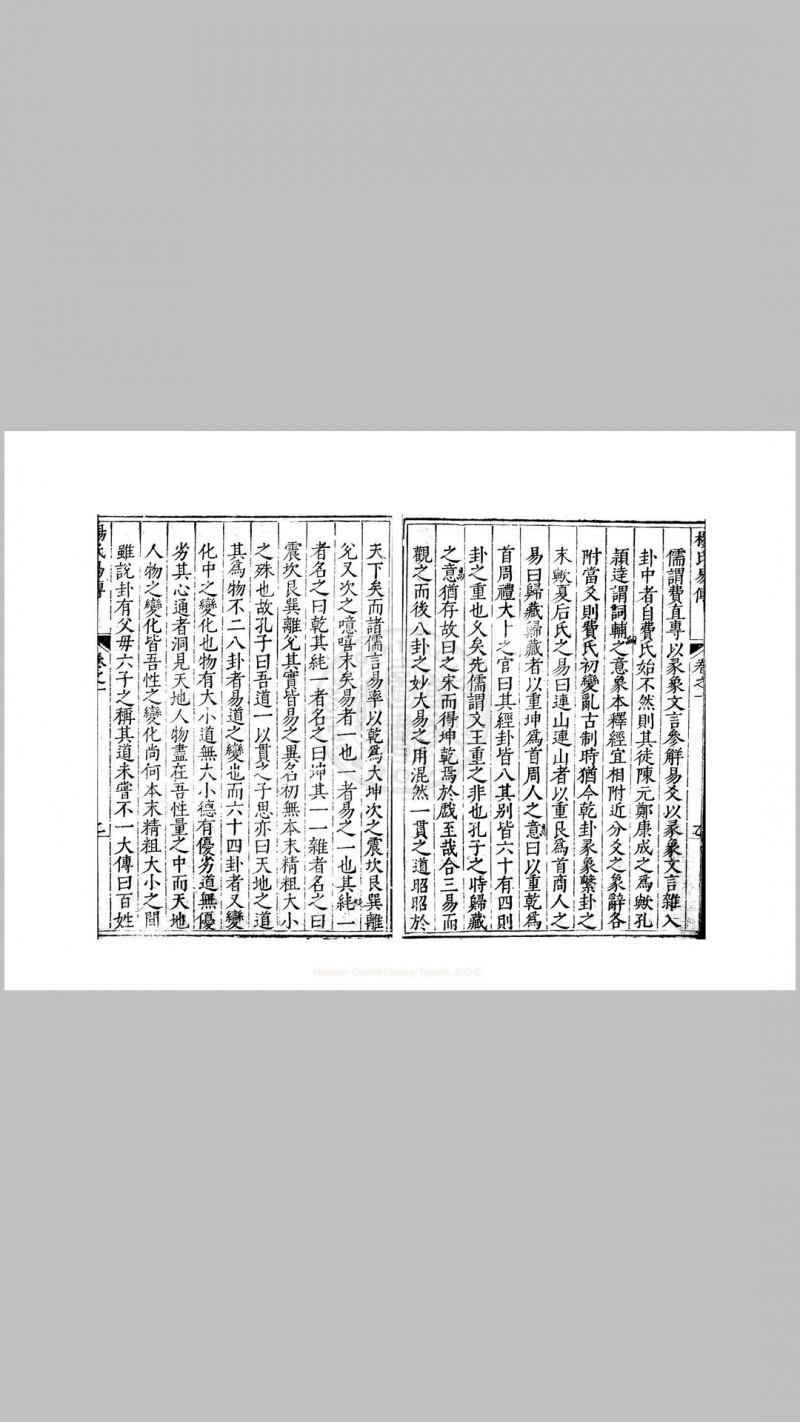 楊氏易傳
卷之一
儒謂費直專以彖象文言參解易爻以彖象文言雜入
卦中者自費氏始不然則其徒陳元鄭康成之爲歟孔
穎逹謂輔之意象本釋經宜相附近分爻之象辭各
附當爻則費氏初變亂古制時猶今乾卦彖象繫卦之
末歟夏后氏之易曰連山連山者以重艮爲首商人之
易曰歸藏歸藏者以重坤爲首周人之意曰以重乾爲
首周禮大卜之官曰其經卦皆八其别皆六十有四則
卦之重也乆矣先儒謂文王重之非也孔子之時歸藏
之意猶存故曰之宋而得坤乾焉於戲至哉合三易而
觀之而後八卦之妙大易之用混然一貫之道昭昭於
天下矣而諸儒言易率以乾爲大坤次之震坎艮巽離
兊又次之噫嘻末矣易者一也一者易之一也其純一
者名之曰乾其純一者名之曰坤其一一雜者名之曰
震坎艮巽離兊其實皆易之異名初無本末精粗大小
之殊也故孔子曰吾道一以貫之子思亦曰天地之道
其爲物不二八卦者易道之變也而六十四卦者又變
化中之變化也物有大小道無大小德有優劣道無優
劣其心通者洞見天地人物盡在吾性量之中而天地
人物之變化皆吾性之變化尚何本末精粗大小之間
雖說卦有父母六子之稱其道未嘗不一大傳曰百姓
楊氏易傳
卷之一
二
National Central Library, Taiwan, R.O.C